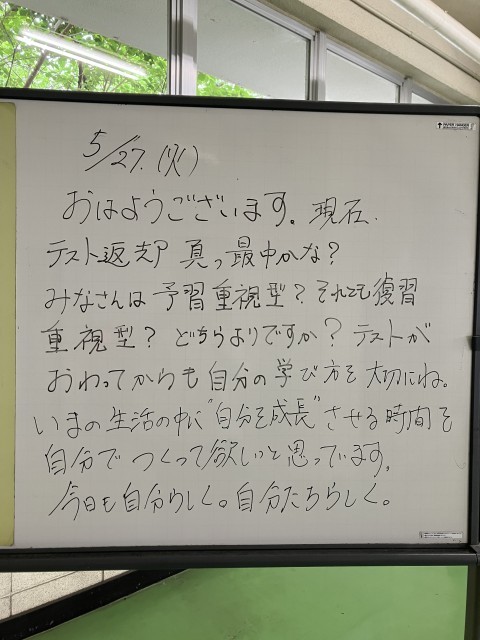 5/27.(火)
おはようございます。現在、
テスト返却 真っ最中かな?
みなさんは予習重視型?それとも復習
重視型?どちらよりですか?テストが
おわってからも自分の学び方を大切にね。
いまの生活の中に"自分を成長"させる時間を
自分でつくって欲しいと思っています。
今日も自分らしく。自分たちらしく。